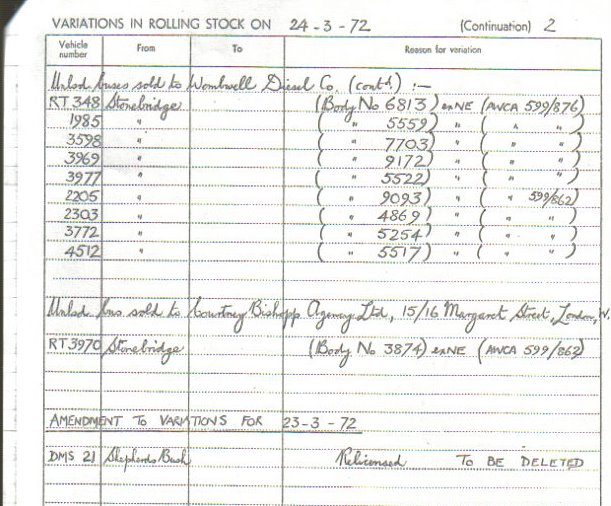 VARIATIONS IN ROLLING STOCK ON 24-3-72 (Continuation) 2
Vehicle number From To Reason for variation
Unlsd. buses sold to Wombwell Diesel Co. (contd.) :-
RT 348 Stonebridge (Body No 6813) ex NE (AWCA 599/876)
1985 " ( " 5559) " ( " " )
3598 " ( " 7703) " ( " " )
3969 " ( " 9172) " ( " " )
3977 " ( " 5522) " ( " " )
2205 " ( " 9093) " ( " 599/862)
2303 " ( " 4869) " ( " " )
3772 " ( " 5254) " ( " " )
4512 " ( " 5517) " ( " " )
Unlsd. bus sold to Courtney Bishopp Agency Ltd, 15/16 Margaret Street, London, W.
RT 3970 Stonebridge (Body No 3874) ex NE (AWCA 599/862)
AMENDMENT TO VARIATIONS FOR 23-3-72
DMS 21 Shepherds Bush Relicensed TO BE DELETED